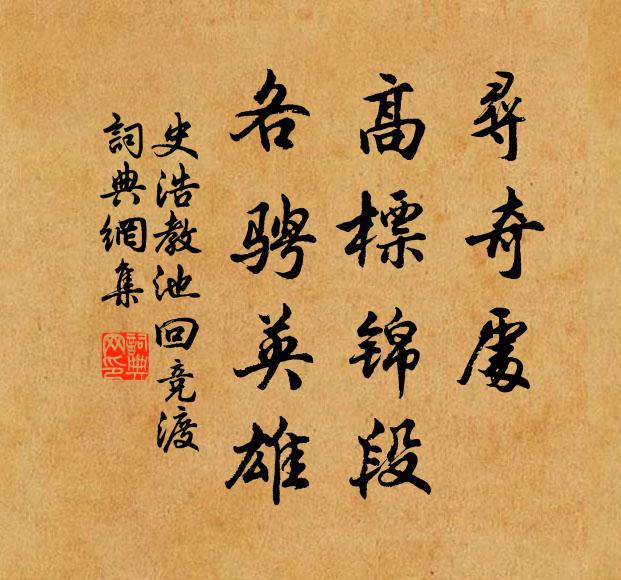 尋奇處
高標锦段
各骋英雄
史浩教池回竞渡
詞典網集
詞典網印